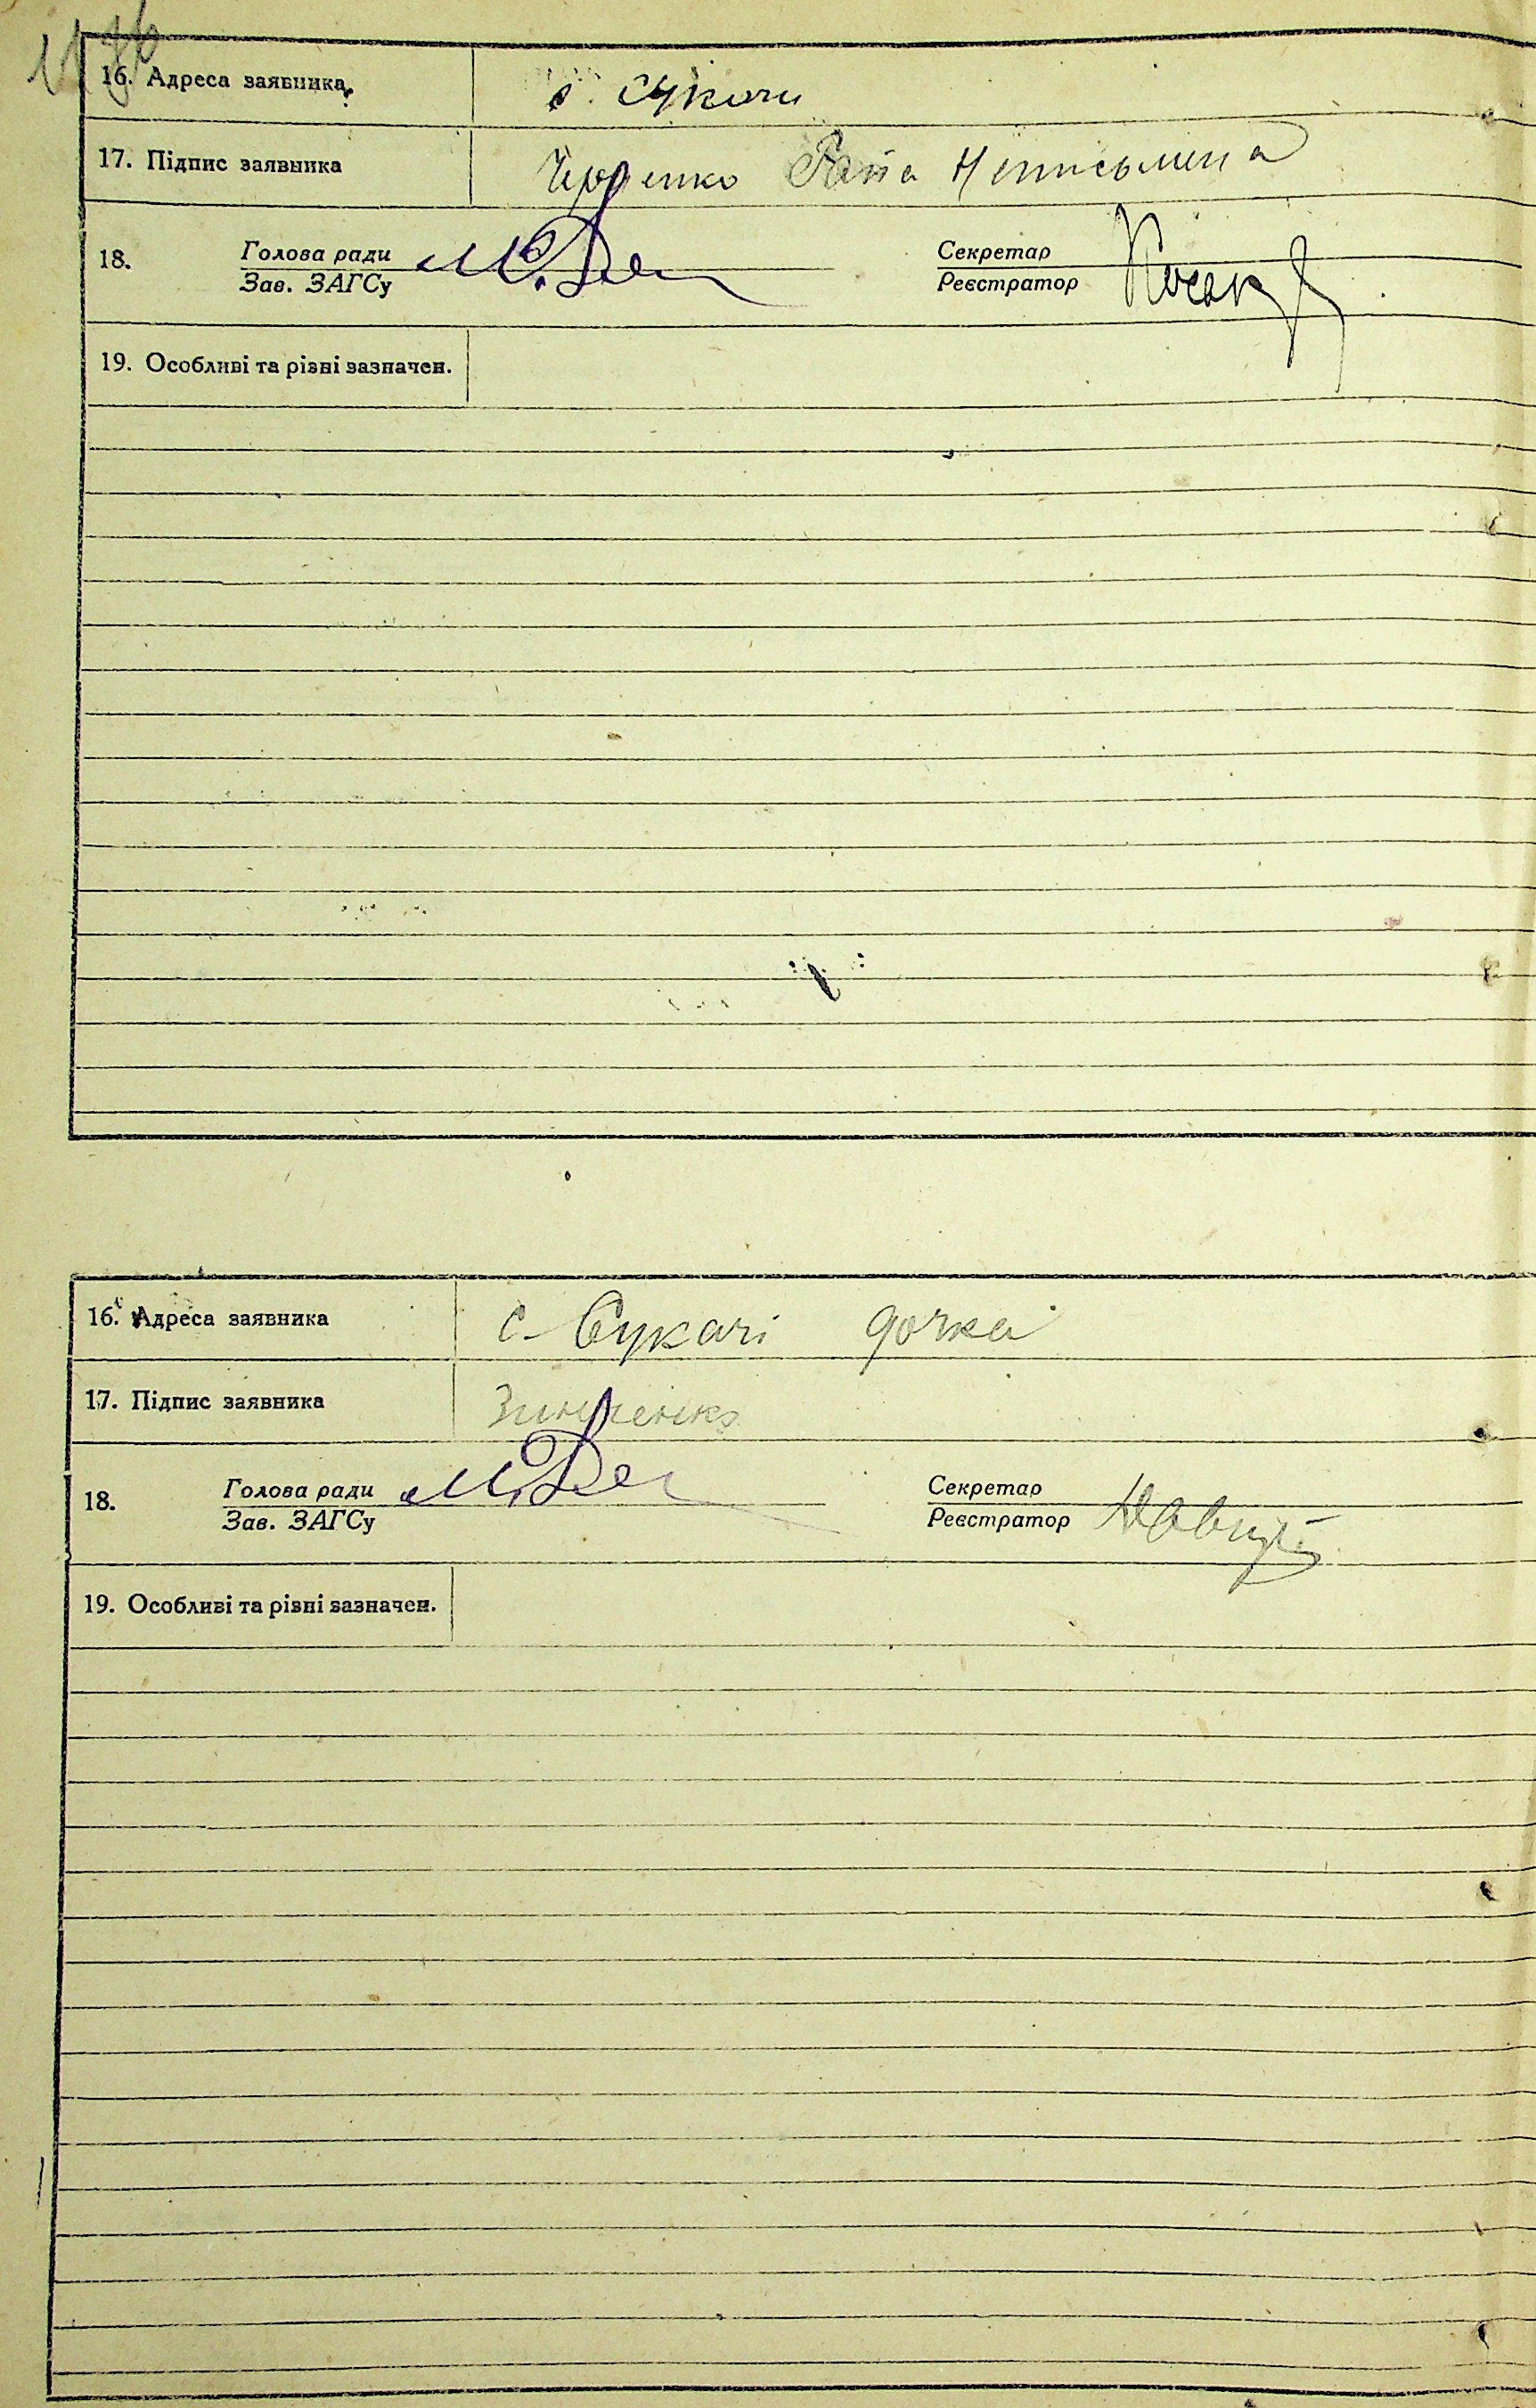 16. Адреса заявника
с. Сукачи
17. Підпис заявника
Неписьмена
18. Голова ради
Зав. ЗАГСу
Секретар
Реєстратор
19. Особливі та різні зазначен.
16. Адреса заявника
с. Сукачі дочка
17. Підпис заявника
18. Голова ради
Зав. ЗАГСу
Секретар
Реєстратор
19. Особливі та різні зазначен.